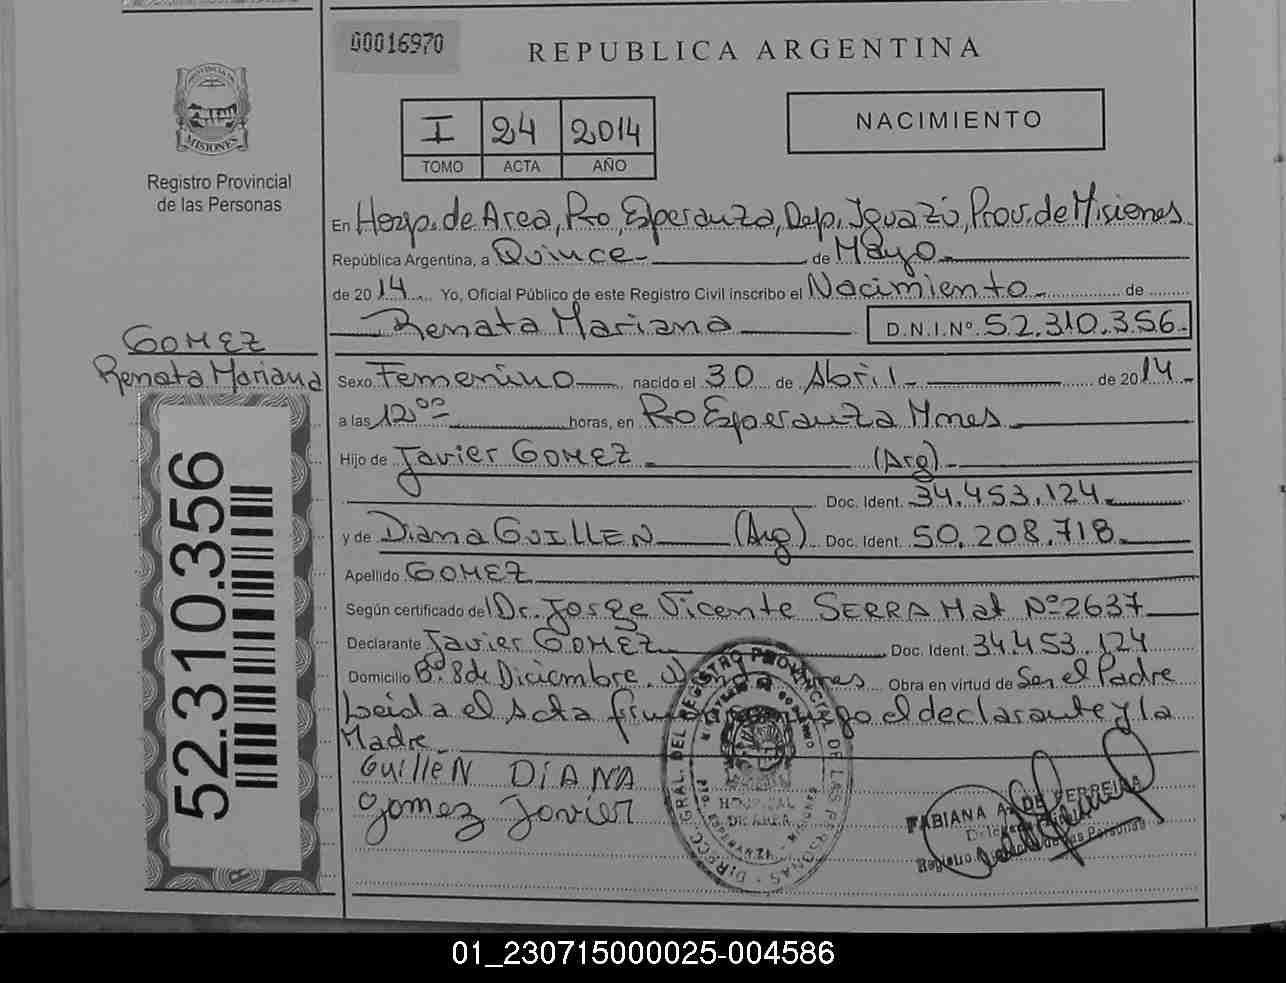 00016970
REPUBLICA ARGENTINA
I 24 2014
TOMO ACTA AÑO
NACIMIENTO
PROVINCIA DE
MISIONES
Registro Provincial
de las Personas
En Hosp. de Area, Pto Esperanza, Dep. Iguazú, Prov. de Misiones
República Argentina, a Quince de Mayo
de 2014 Yo, Oficial Público de este Registro Civil inscribo el Nacimiento de
Renata Mariana D.N.I.Nº 52.310.356
GOMEZ
Renata Mariana
Sexo Femenino nacido el 30 de Abril de 2014
a las 12ºº horas, en Pto Esperanza Mnes
Hijo de Javier GOMEZ (Arg)
Doc. Ident. 34.453.124
y de Diana GUILLEN (Arg) Doc. Ident. 50.208.718
Apellido GOMEZ
Según certificado del Dr. Jorge Vicente SERRA Mat Nº 2637
Declarante Javier GOMEZ Doc. Ident. 34.453.124
Domicilio Bº 8 de Diciembre Obra en virtud de Ser el Padre
Leida el Acta el declarante y la
Madre
GuilleN DiANA
gomez Javier
52.310.356
DIRECC. GRAL. DEL REGISTRO PROVINCIAL DE LAS PERSONAS
HOSPITAL
DE AREA
FABIANA A. DE FERREIRA
Registro de las Personas
01_230715000025-004586